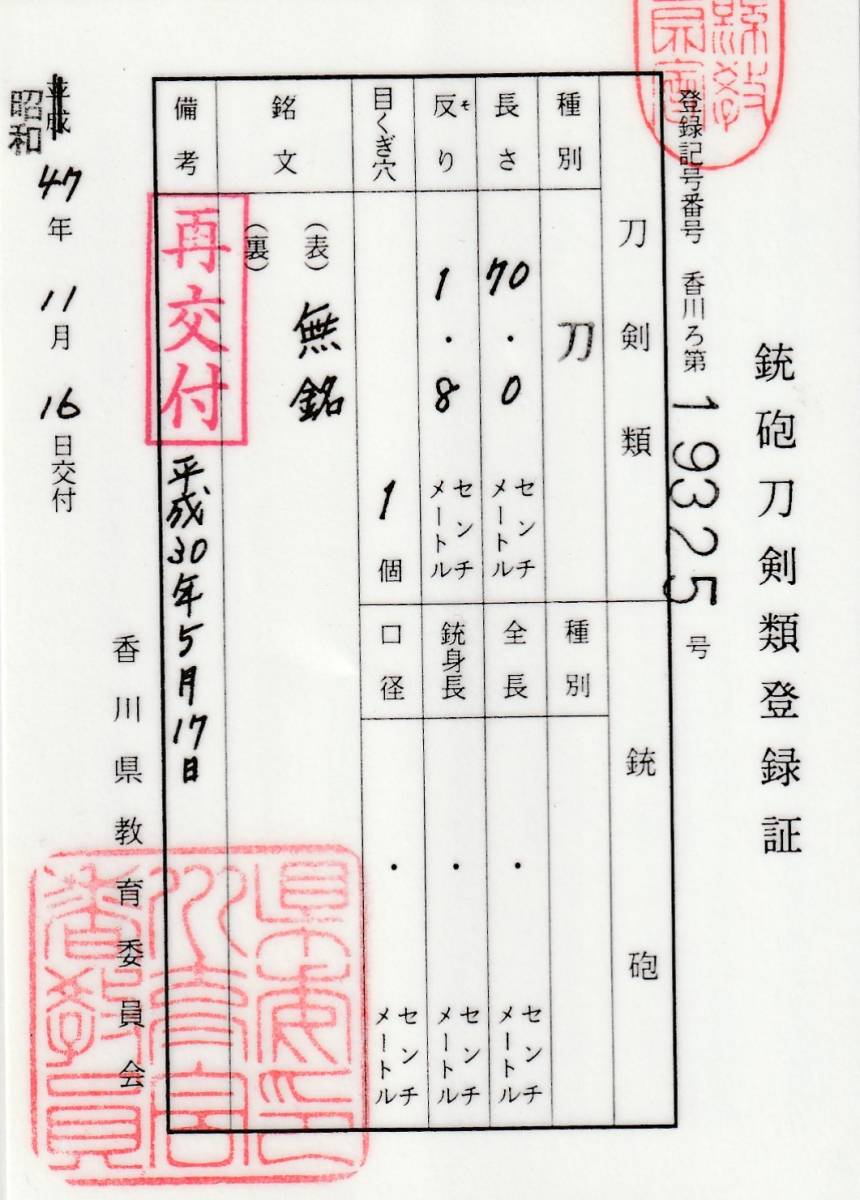 銃砲刀剣類登録証
登録記号番号 香川ろ第19325号
刀剣類
銃砲
種別
刀
種別
長さ
70.0センチメートル
全長
・センチメートル
反り
そ
1.8センチメートル
銃身長
・センチメートル
目くぎ穴
1個
口径
・センチメートル
銘文
(表)無銘
(裏)
備考
再交付
平成30年5月17日
平成
昭和
47年11月16日交付
香川県教育委員会